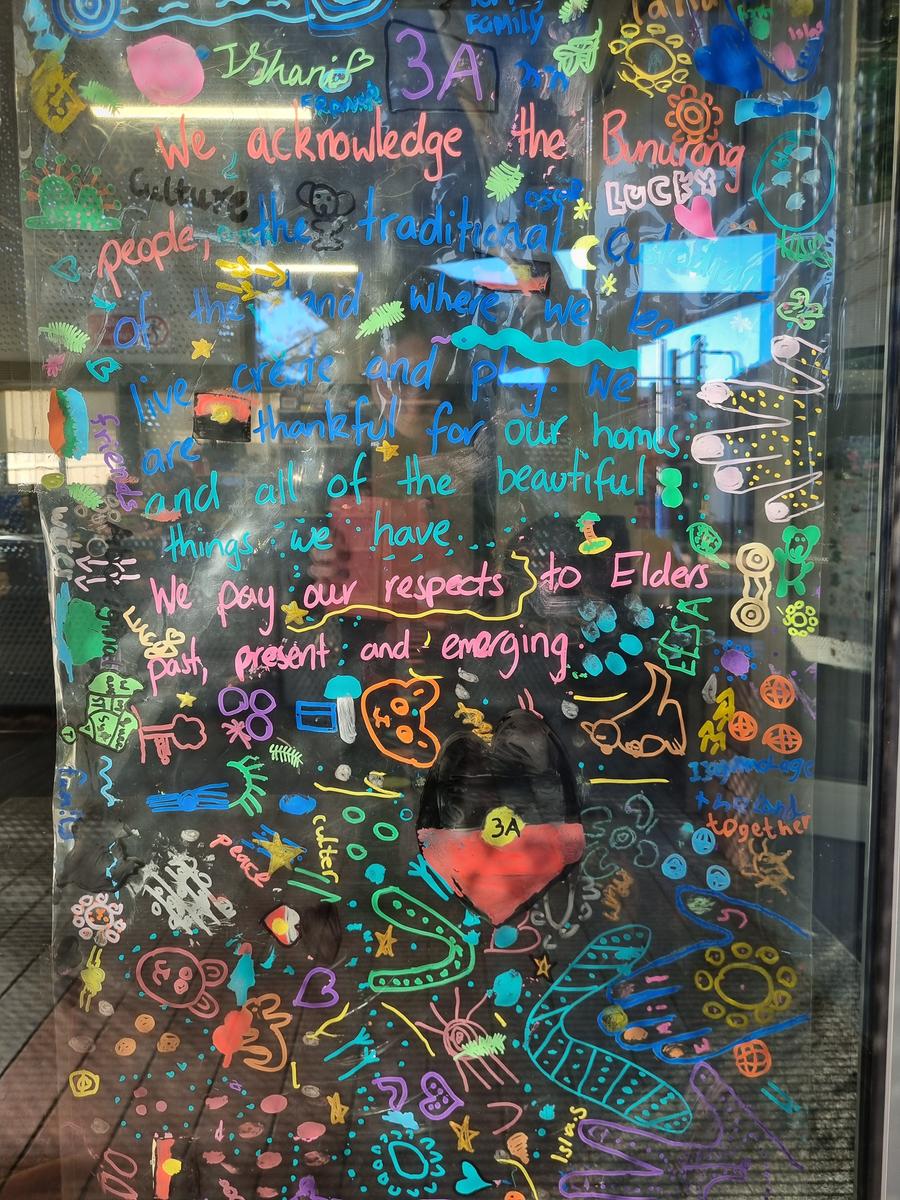 FAMILY
Ishani
3A
FRANK
We acknowledge the Bunurong
Culture
LUCKY
people, the traditional Custodians
of the land where we
live create and play. We
are thankful for our homes
and all of the beautiful
friends
things we have.
We pay our respects to Elders
past, present and emerging.
LUCKY
EESA
family
3A
the land
together
peace